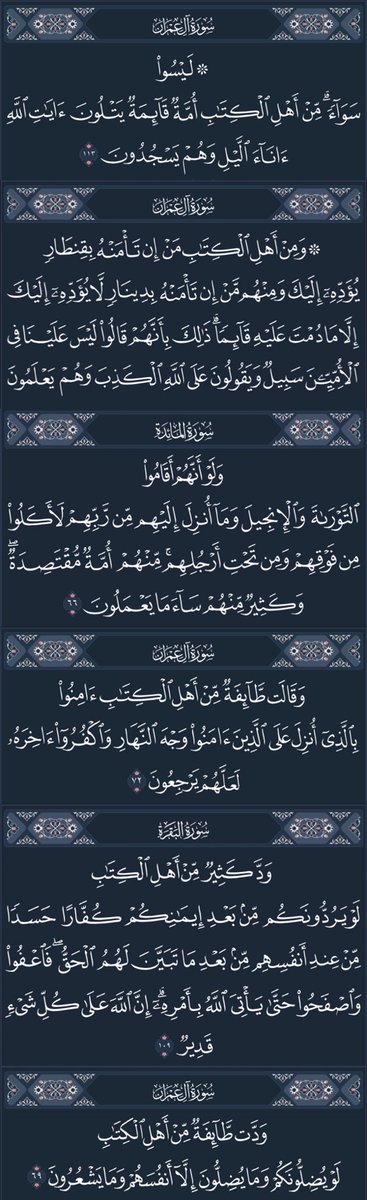 سُورَةُ آلِ عِمْرَان
۞ لَيْسُوا۟
سَوَآءًۗ مِّنْ أَهْلِ ٱلْكِتَٰبِ أُمَّةٌ قَآئِمَةٌ يَتْلُونَ ءَايَٰتِ ٱللَّهِ
ءَانَآءَ ٱلَّيْلِ وَهُمْ يَسْجُدُونَ ١١٣
سُورَةُ آلِ عِمْرَان
۞ وَمِنْ أَهْلِ ٱلْكِتَٰبِ مَنْ إِن تَأْمَنْهُ بِقِنطَارٍ
يُؤَدِّهِۦٓ إِلَيْكَ وَمِنْهُم مَّنْ إِن تَأْمَنْهُ بِدِينَارٍ لَّا يُؤَدِّهِۦٓ إِلَيْكَ
إِلَّا مَا دُمْتَ عَلَيْهِ قَآئِمًاۗ ذَٰلِكَ بِأَنَّهُمْ قَالُوا۟ لَيْسَ عَلَيْنَا فِى
ٱلْأُمِّيِّـۧنَ سَبِيلٌ وَيَقُولُونَ عَلَى ٱللَّهِ ٱلْكَذِبَ وَهُمْ يَعْلَمُونَ
سُورَةُ المَائِدَة
وَلَوْ أَنَّهُمْ أَقَامُوا۟
ٱلتَّوْرَىٰةَ وَٱلْإِنجِيلَ وَمَآ أُنزِلَ إِلَيْهِم مِّن رَّبِّهِمْ لَأَكَلُوا۟
مِن فَوْقِهِمْ وَمِن تَحْتِ أَرْجُلِهِمۚ مِّنْهُمْ أُمَّةٌ مُّقْتَصِدَةٌۖ
وَكَثِيرٌ مِّنْهُمْ سَآءَ مَا يَعْمَلُونَ ٦٦
سُورَةُ آلِ عِمْرَان
وَقَالَت طَّآئِفَةٌ مِّنْ أَهْلِ ٱلْكِتَٰبِ ءَامِنُوا۟
بِٱلَّذِىٓ أُنزِلَ عَلَى ٱلَّذِينَ ءَامَنُوا۟ وَجْهَ ٱلنَّهَارِ وَٱكْفُرُوٓا۟ ءَاخِرَهُۥ
لَعَلَّهُمْ يَرْجِعُونَ ٧٢
سُورَةُ البَقَرَة
وَدَّ كَثِيرٌ مِّنْ أَهْلِ ٱلْكِتَٰبِ
لَوْ يَرُدُّونَكُم مِّنۢ بَعْدِ إِيمَٰنِكُمْ كُفَّارًا حَسَدًا
مِّنْ عِندِ أَنفُسِهِم مِّنۢ بَعْدِ مَا تَبَيَّنَ لَهُمُ ٱلْحَقُّۖ فَٱعْفُوا۟
وَٱصْفَحُوا۟ حَتَّىٰ يَأْتِىَ ٱللَّهُ بِأَمْرِهِۦٓۗ إِنَّ ٱللَّهَ عَلَىٰ كُلِّ شَىْءٍ
قَدِيرٌ ١٠٩
سُورَةُ آلِ عِمْرَان
وَدَّت طَّآئِفَةٌ مِّنْ أَهْلِ ٱلْكِتَٰبِ
لَوْ يُضِلُّونَكُمْ وَمَا يُضِلُّونَ إِلَّآ أَنفُسَهُمْ وَمَا يَشْعُرُونَ ٦٩